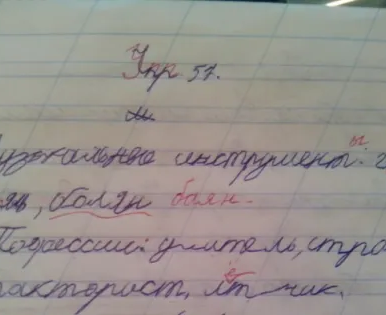 Упр 57.
м
узыкальные инструменты: г
ль, оболян баян.
Профессии: учитель, стро
ракторист, лётчик.